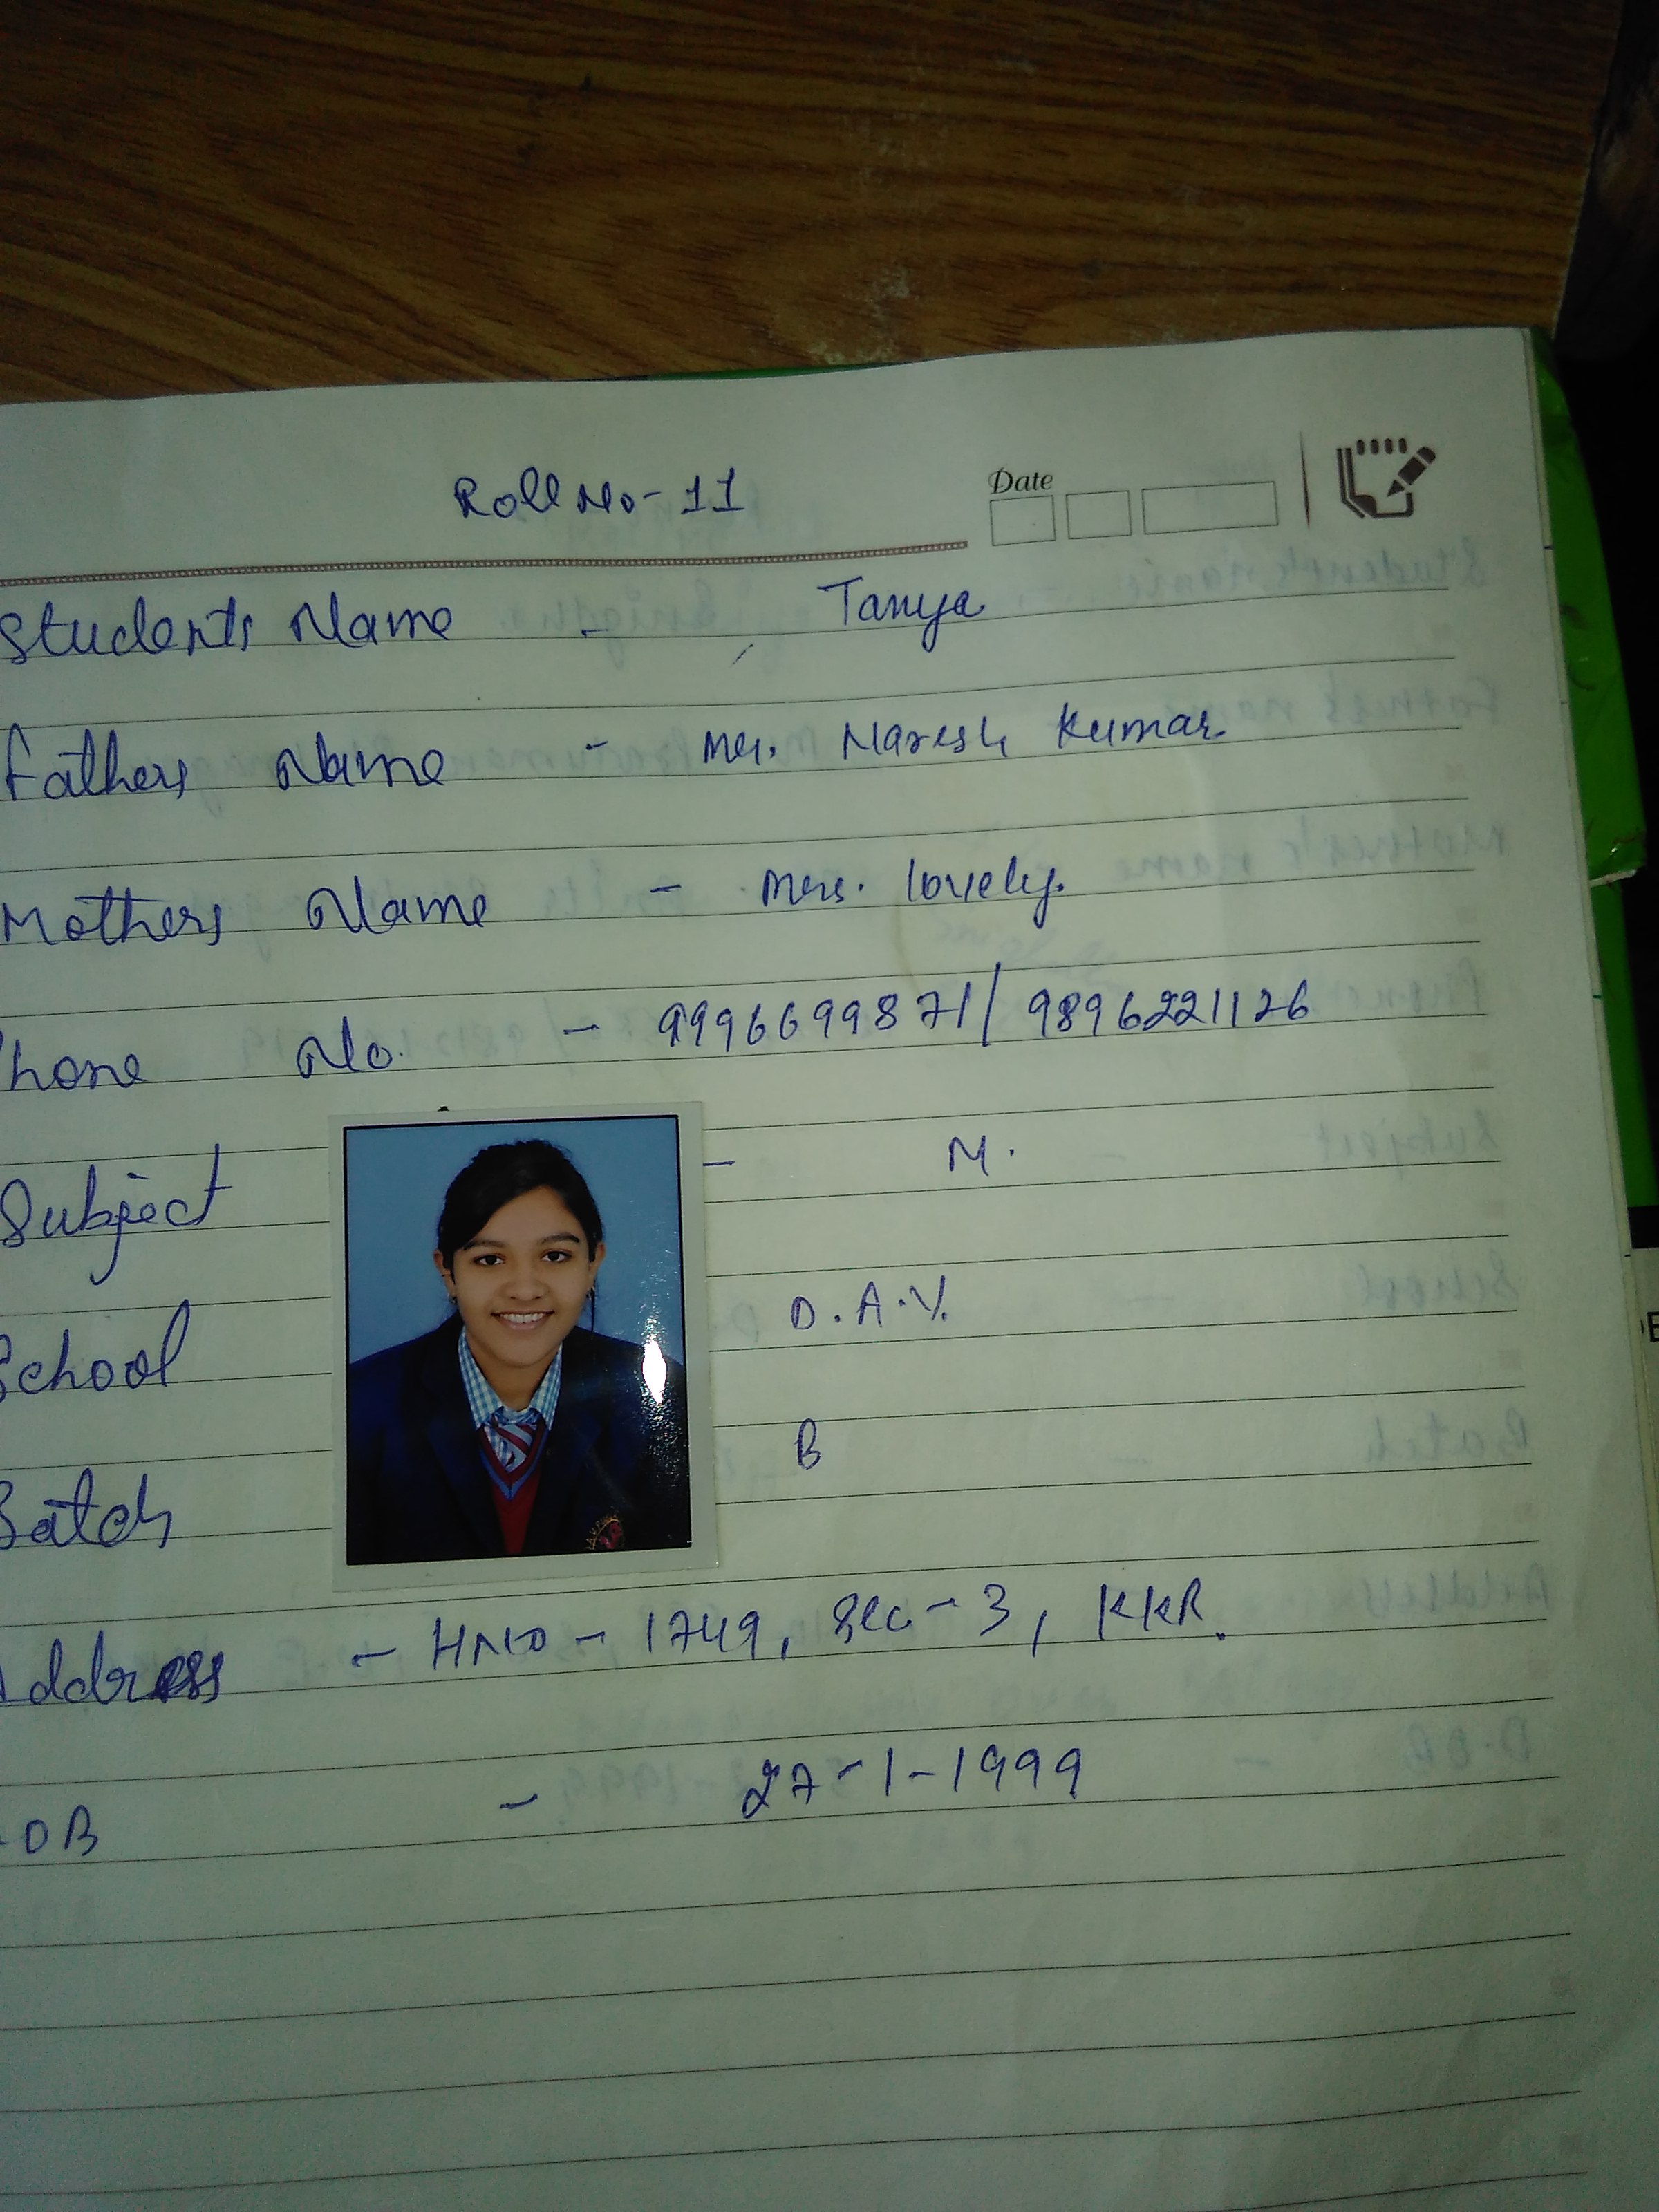 Roll No - 11
Date
Students Name - Tanya
Fathers Name - Mr. Naresh Kumar
Mothers Name - Mrs. lovely.
hone No. - 9996699871/9896221126
Subject - M.
School D.A.V.
Batch B
Address - HNO - 1749, Sec - 3, KKR.
OB - 27-1-1999